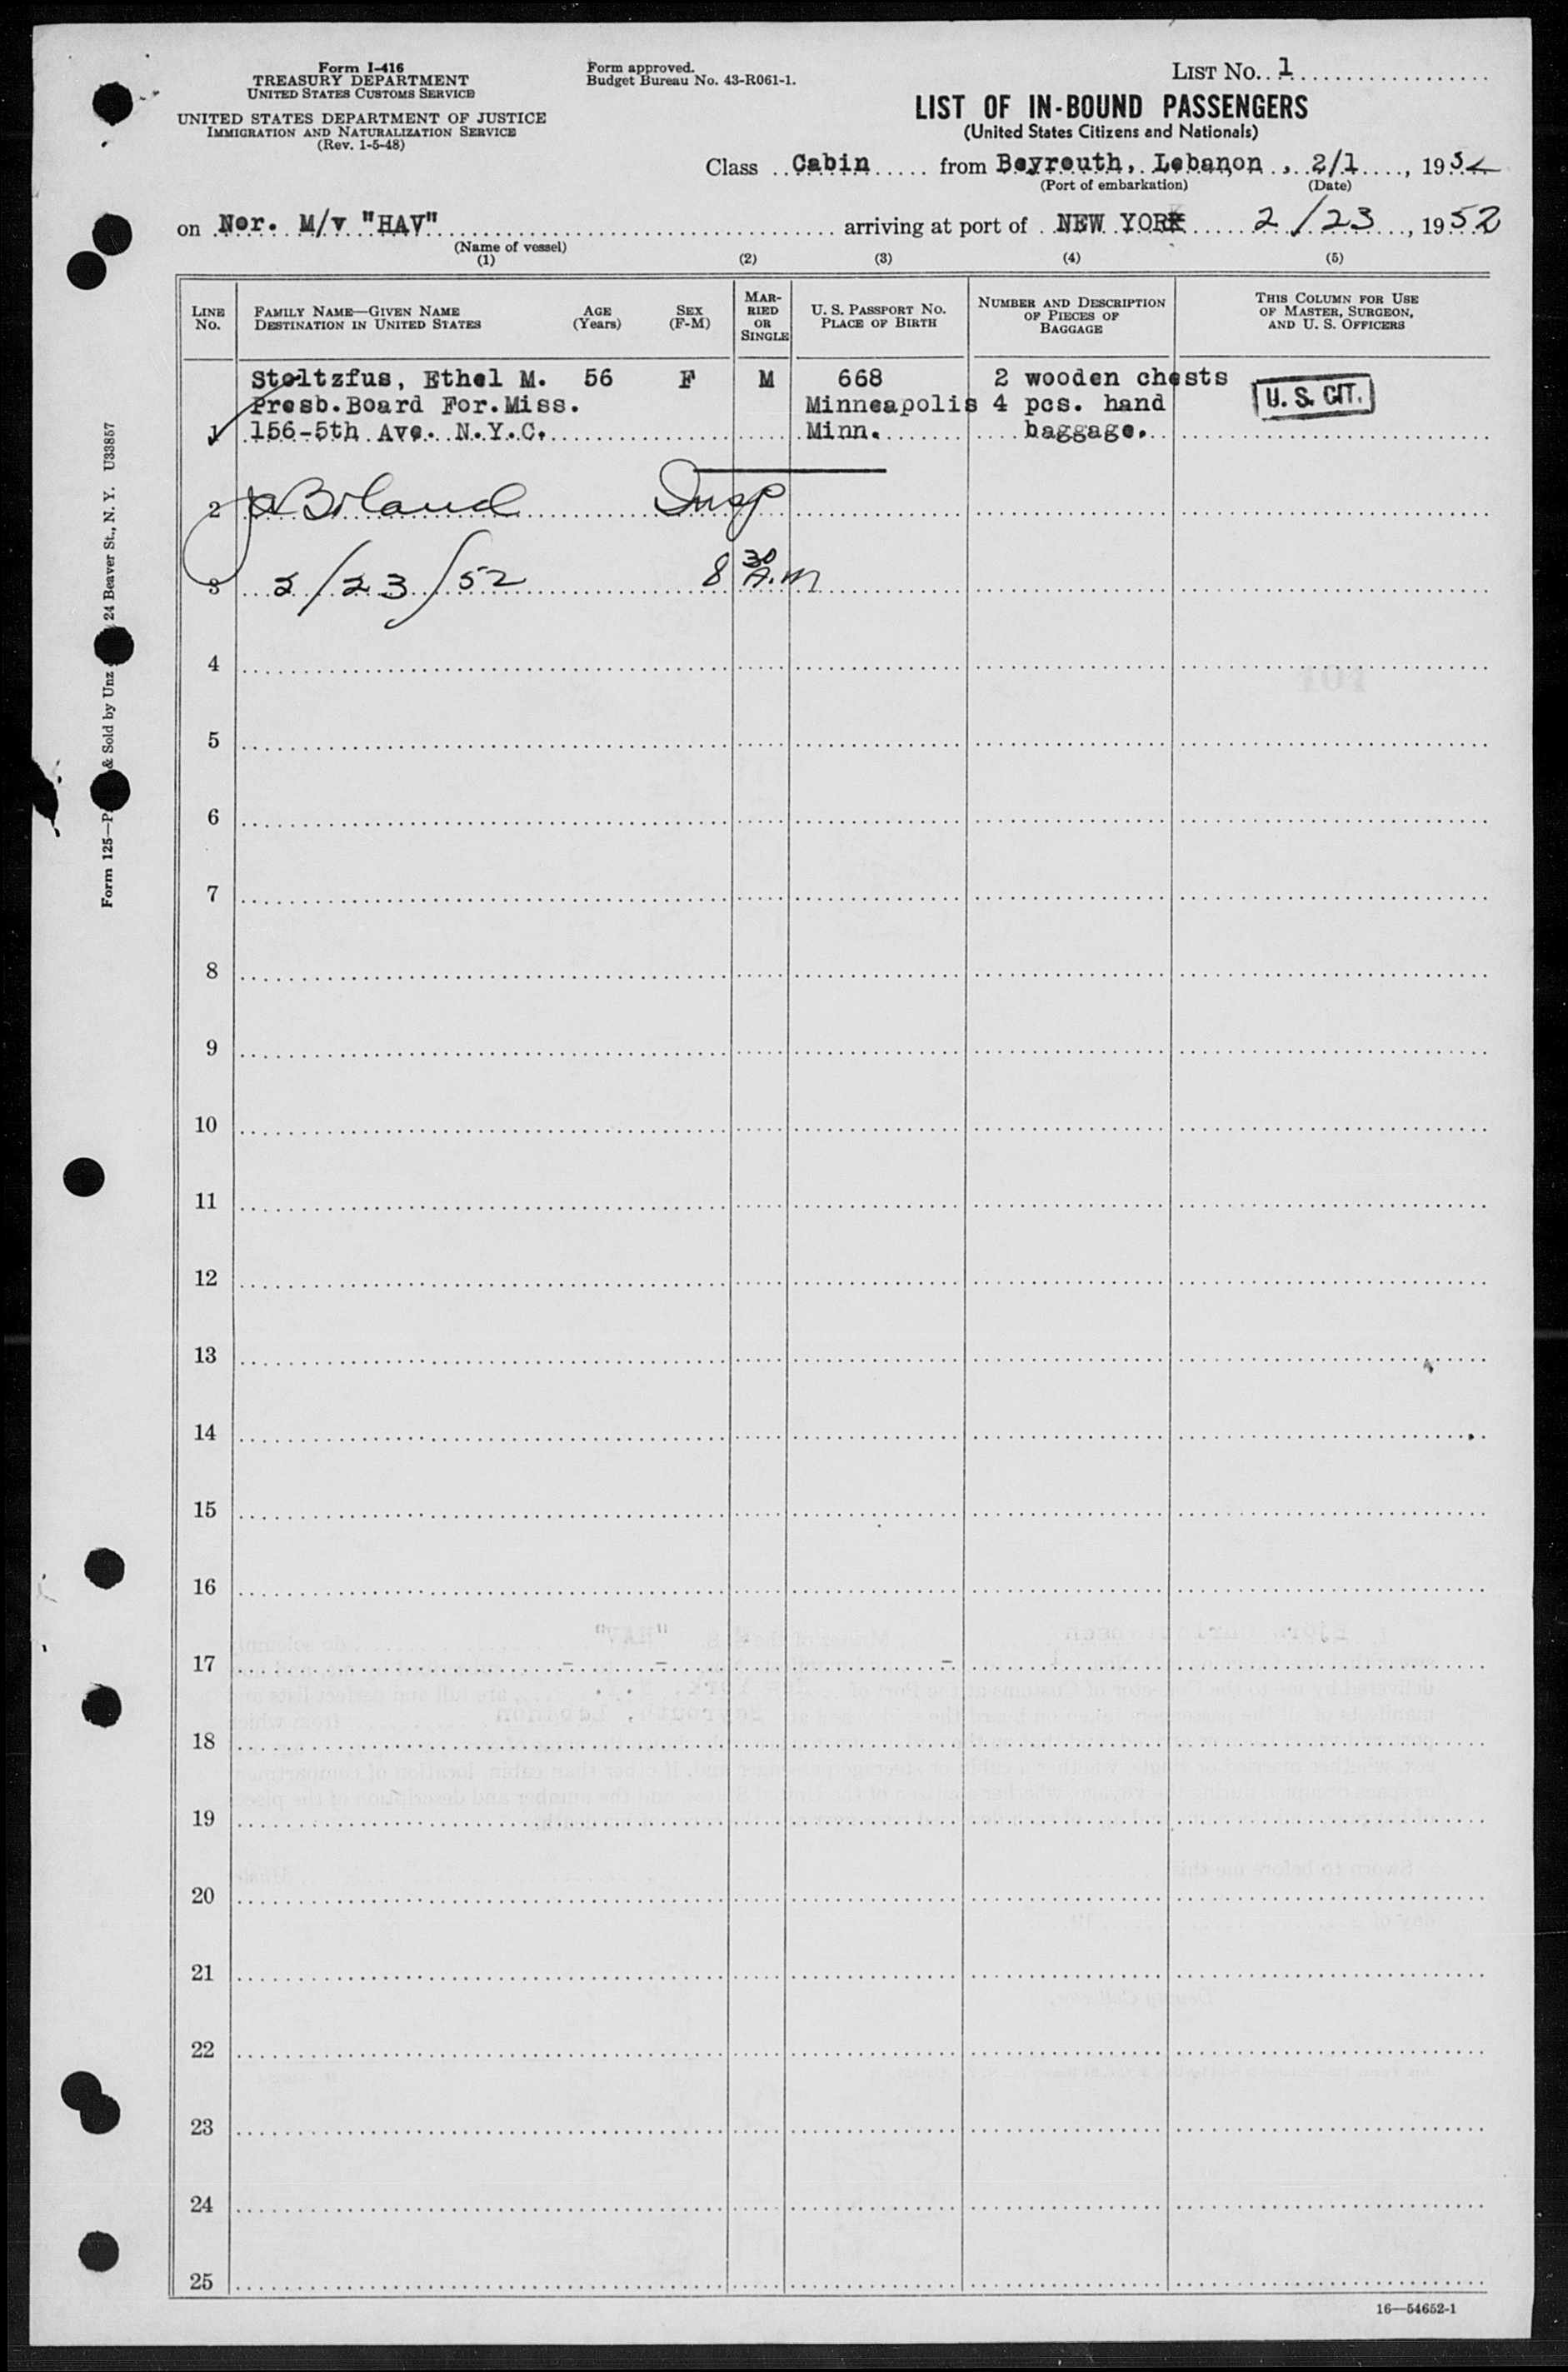 Form I-416
TREASURY DEPARTMENT
UNITED STATES CUSTOMS SERVICE
UNITED STATES DEPARTMENT OF JUSTICE
IMMIGRATION AND NATURALIZATION SERVICE
(Rev. 1-5-48)
Form approved.
Budget Bureau No. 43-R061-1.
LIST NO. 1
LIST OF IN-BOUND PASSENGERS
(United States Citizens and Nationals)
Class Cabin from Beyrouth, Lebanon, 2/1, 1952
(Port of embarkation) (Date)
on Nor. M/v "HAV" arriving at port of NEW YORK 2/23, 1952
(Name of vessel)
(1) (2) (3) (4) (5)
LINE No. FAMILY NAME—GIVEN NAME DESTINATION IN UNITED STATES AGE (Years) SEX (F-M) MARRIED OR SINGLE U. S. PASSPORT NO. PLACE OF BIRTH NUMBER AND DESCRIPTION OF PIECES OF BAGGAGE THIS COLUMN FOR USE OF MASTER, SURGEON, AND U. S. OFFICERS
Stoltzfus, Ethel M. 56 F M 668 2 wooden chests U. S. CIT.
Presb.Board For.Miss. Minneapolis 4 pcs. hand
1 156-5th Ave. N.Y.C. Minn. baggage.
2 Boland Insp
3 2/23/52 8 30 A.M
4
5
6
7
8
9
10
11
12
13
14
15
16
17
18
19
20
21
22
23
24
25
16—54652-1
Form 125—P & Sold by Unz 24 Beaver St., N. Y. U33857